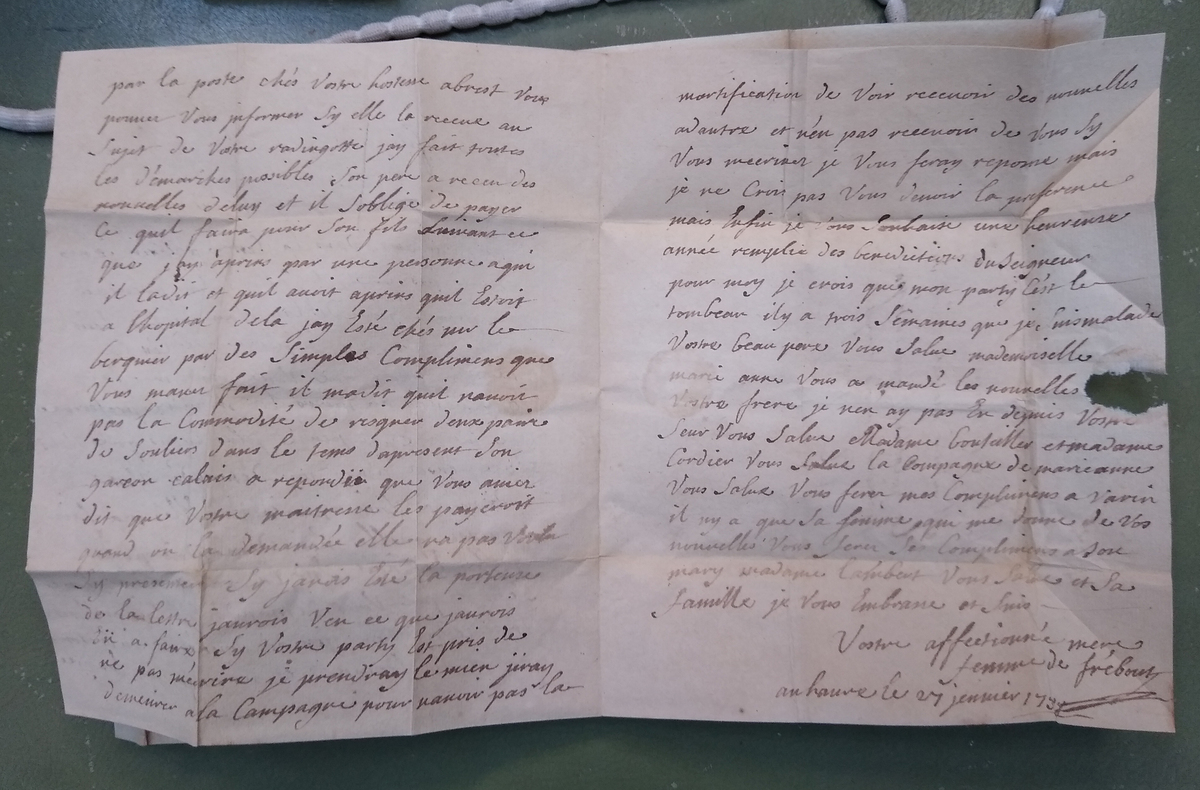 par la poste chés Vostre hostesse abrest Vous
pouvez Vous jnformer Sy elle la receue au
Sujet de Vostre radingotte jay fait toutes
les démarches possibles Son pere a receu des
nouvelles deluy et il Soblige de payer
Ce quil faira pour Son fils Suivant ce
que jay aprins par une personne aqui
il ladit et quil avoit aprins quil Estoit
a lhopital dela jay Esté chés mr le
berquier par des Simples Complimens que
Vous mavez fait il madit quil navoit
pas la Commodité de risquer deux paire
de Souliers dans le tems dapresent Son
garcon calais a repondu que Vous aviez
dit que Vostre maitresse les payeroit
quand on la demandée elle na pas Voulu
Sy presenter Sy javois Esté la porteuse
de la lettre jaurois Veu ce que jaurois
Eü a faire Sy Vostre party Est pris de
ne pas mécrire je prendray le mien jiray
demeurer ala Campagne pour navoir pas la
mortification de Voir recevoir des nouvelles
adautre et nén pas recevoir de Vous Sy
Vous mecrivez je Vous feray reponse mais
je ne Crois pas Vous devoir la preference
mais Enfin je Vous Souhaite une heureuse
année remplie des benedictions du Seigneur
pour moy je crois que mon party Cést le
tombeau il y a trois Semaines que je Suis malade
Vostre beau pere Vous Salue mademoiselle
marie anne Vous a mandé les nouvelles
Vostre frere je nen ay pas Eu depuis Vostre
Seur Vous Salue Madame bouteiller et madame
Cordier Vous Salue la Compagne de marieanne
Vous Salue Vous ferez mes Complimens a Varin
il ny a que Sa femme qui me donne de Vos
nouvelles Vous ferez Ses Complimens a Son
mary Madame lambert Vous Salue et Sa
famille je Vous Embrasse et Suis
Vostre affectionnée mere
femme de frébourg
au havre le 27 jenvier